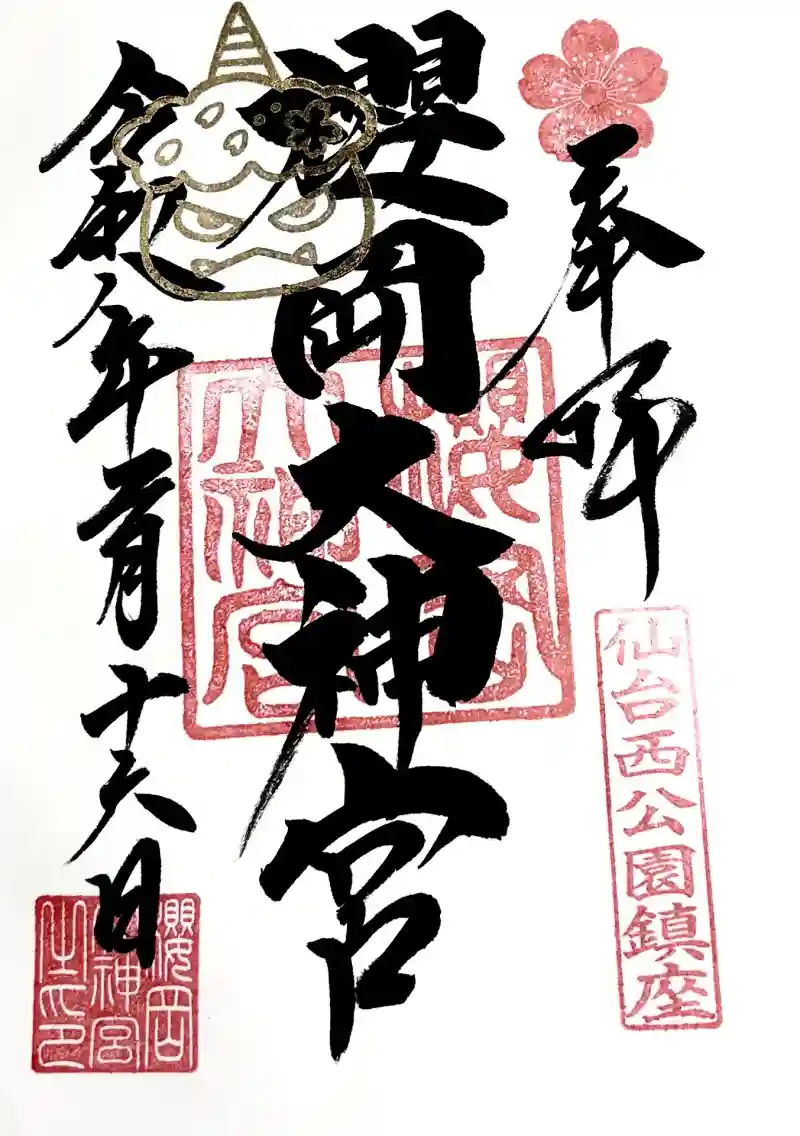 奉拝
仙台西公園鎮座
櫻岡大神宮
櫻岡
大神宮
令和八年二月十六日
櫻岡
大神宮
之印